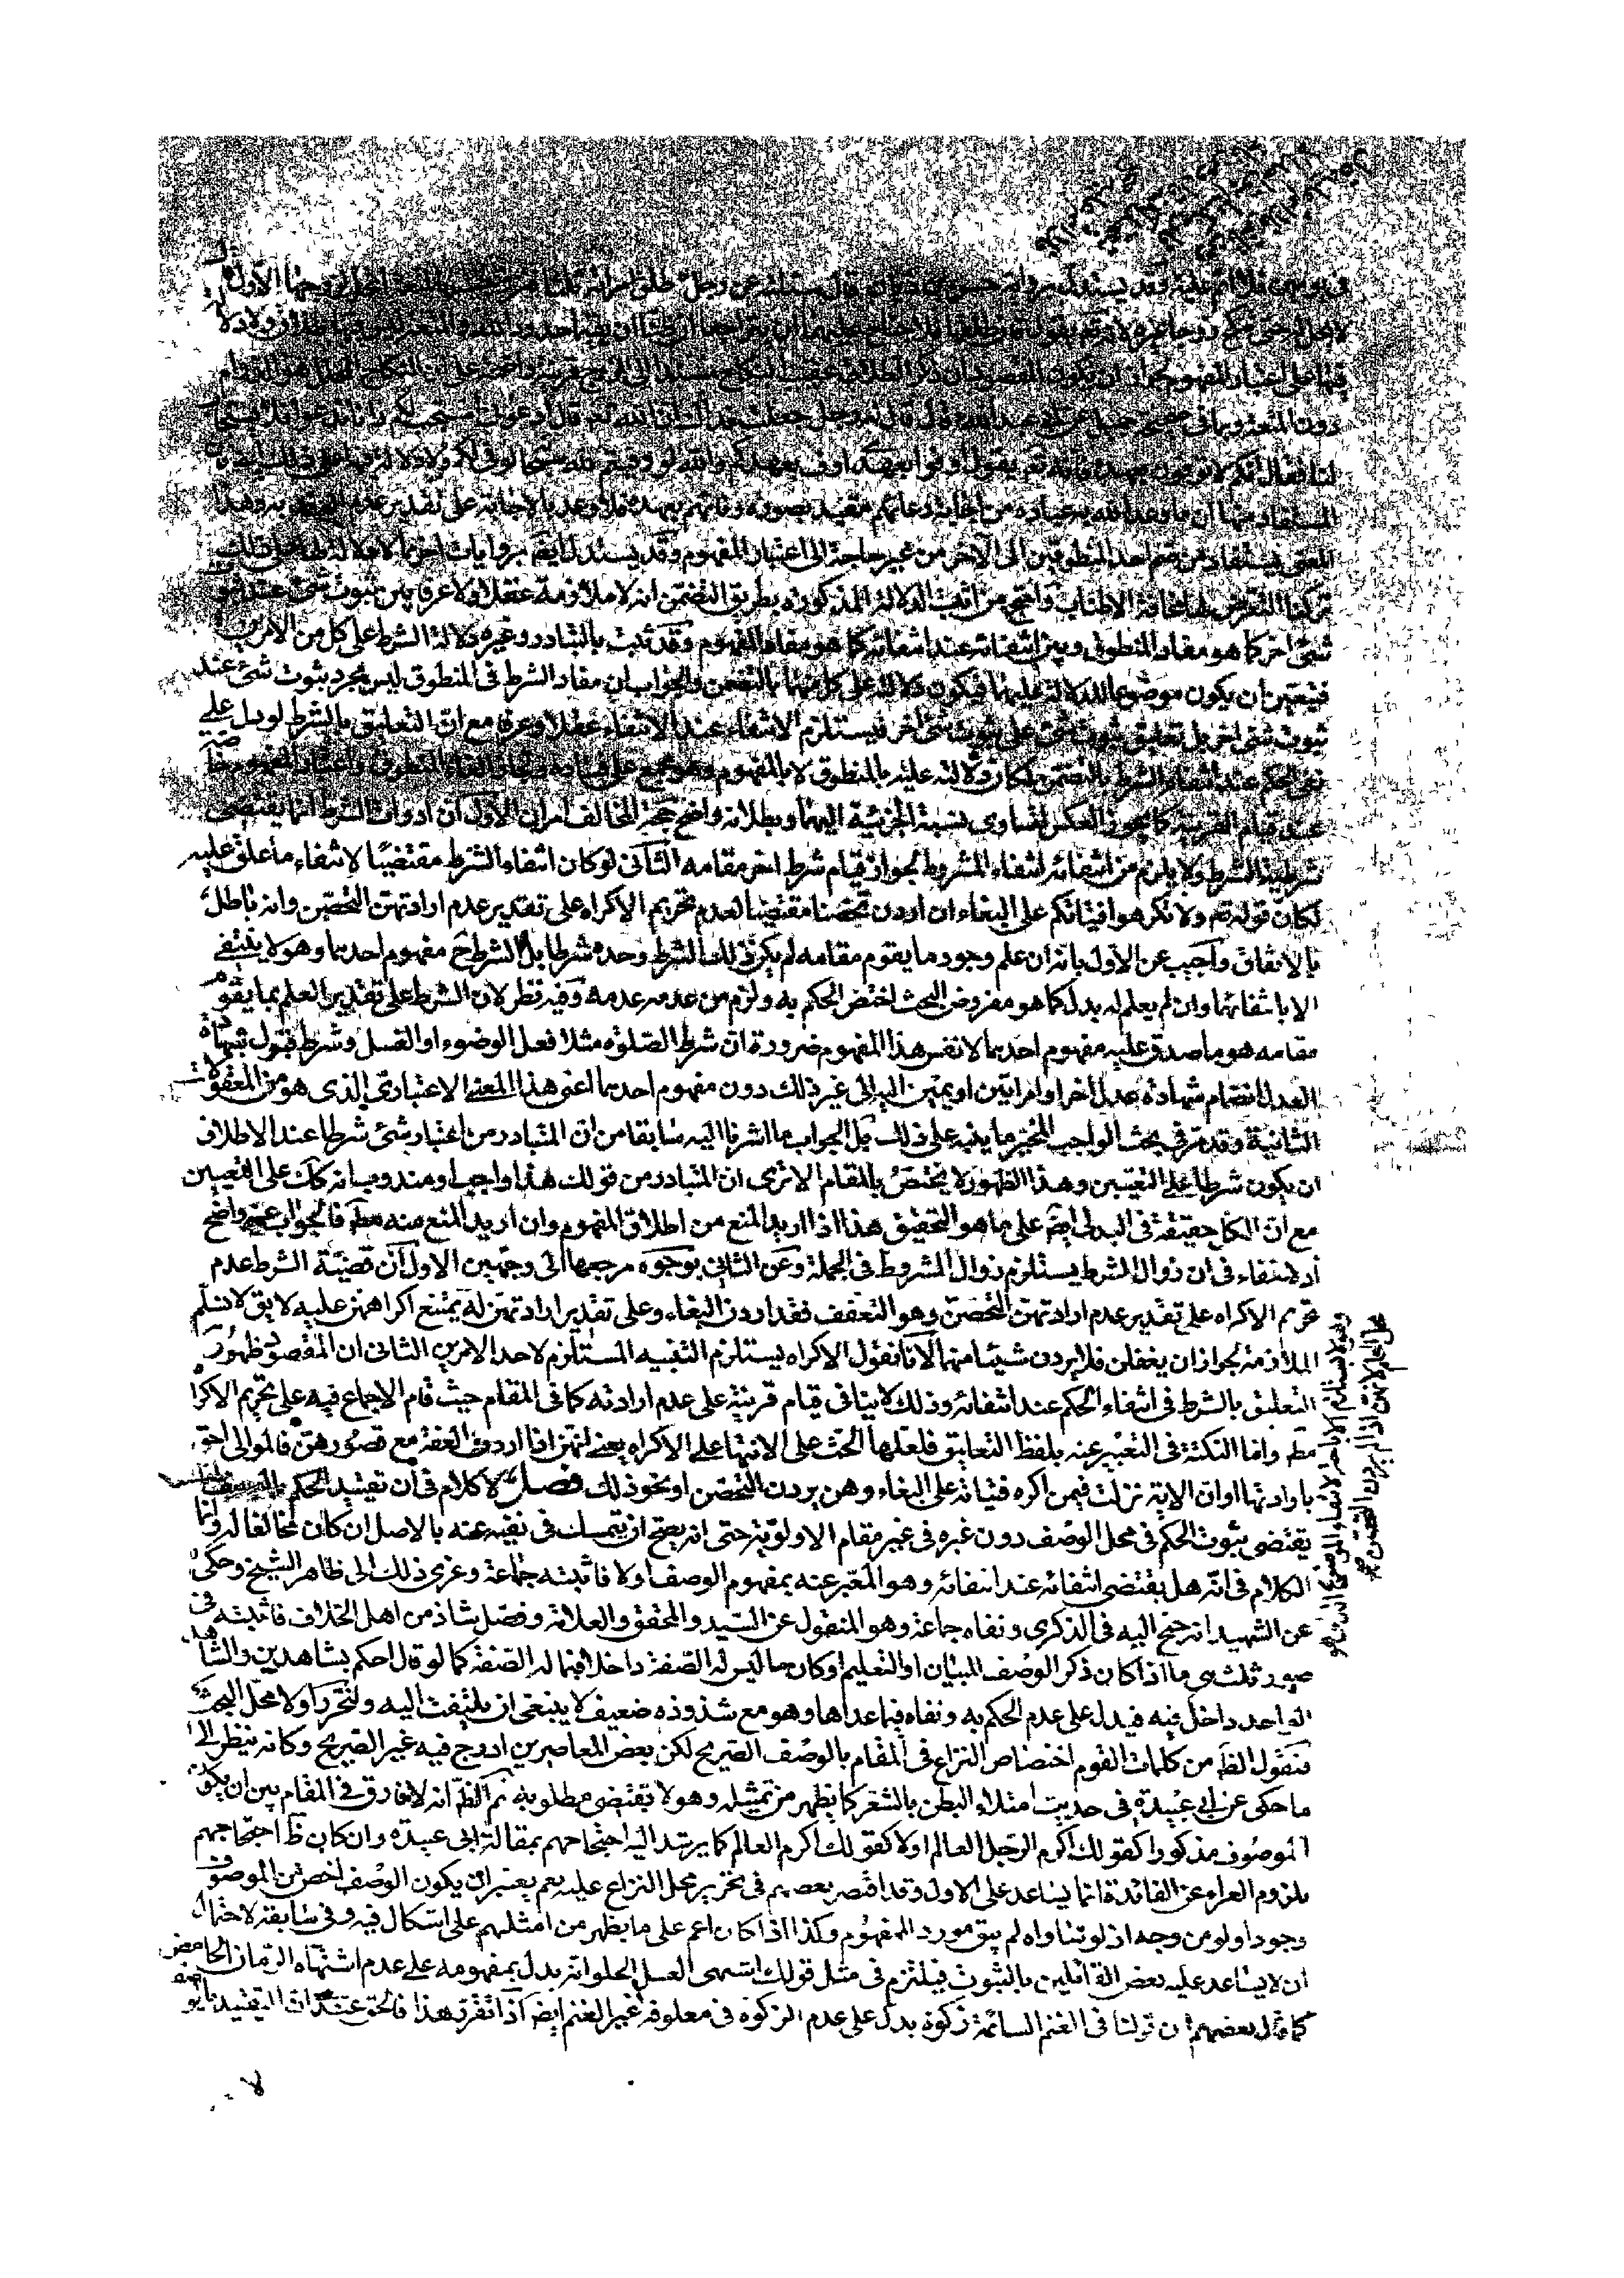 في يومين فلا اثم عليه وقد يستدل برواية حسن قال سئلته عن رجل طلق امرأته ثلثا لزوجها الاول
لا تحل له حتى تنكح زوجا غيره
فيها على اعتبار المفهوم لجواز ان يكون المقصود ان ذكر الطلاق عقيب النكاح قرينة واضحة على ان النكاح هو الدوام
دون المتعة وبما في صحيح جميل عن ابي عبد الله قال قال له رجل جعلت فداك ان الله يقول ادعوني استجب لكم وانا ندعو فلا يستجاب
لنا فقال لانكم لا توفون بعهده فانه تع يقول اوفوا بعهدي اوف بعهدكم والله لو وفيتم لله سبحانه لوفى لكم ولا دلالة
المستفاد منها ان ما وعد الله به عباده من اجابة دعائهم مقيد بصورة وفائهم بعهده فلا وعد بالاجابة على تقدير عدم وهذا
المعنى يستفاد من ضم احد المنطوقين الى الاخر من غير حاجة الى اعتبار المفهوم وقد يستدل ايضا بروايات اخر لا دلالة لها على ذلك
تركنا التعرض لها مخافة الاطناب واحتج من اثبت الدلالة المذكورة بطريق التضمن انه لا ملازمة عقلا ولا عرفا بين ثبوت شئ عند ثبوت
شئ اخر كما هو مفاد المنطوق وبين انتفائه عند انتفائه كما هو مفاد المفهوم وقد ثبت بالتبادر وغيره دلالة الشرط على كل من الامرين
فيتعين ان يكون موضوعا للدلالة عليهما فيكون دلالته على كل منهما بالتضمن والجواب ان مفاد الشرط في المنطوق ليس مجرد ثبوت شئ عند
ثبوت شئ اخر بل تعليق ثبوت شئ على ثبوت شئ اخر فيستلزم الانتفاء عند الانتفاء عقلا وعرفا مع ان التعليق بالشرط لو دل على
نفى الحكم عند انتفاء الشرط بالتضمن لكان دلالته عليه بالمنطوق لا بالمفهوم وهو مجمع على فساده ولجاز الغاء المنطوق واعتبار المفهوم خاصة
عند قيام القرينة كما يجوز العكس لتساوى نسبة الجزئية اليهما وبطلانه واضح حجة المخالف امران الاول ان ادوات الشرط انما يقتضى
شرطية الشرط ولا يلزم من انتفائه انتفاء المشروط لجواز قيام شرط اخر مقامه الثانى لو كان انتفاء الشرط مقتضيا لانتفاء ما علق عليه
لكان قوله تع ولا تكرهوا فتياتكم على البغاء ان اردن تحصنا مقتضيا لعدم تحريم الاكراه على تقدير عدم ارادتهن التحصن وانه باطل
بالاتفاق واجيب عن الاول بانه ان علم وجود ما يقوم مقامه لم يكن ذلك الشرط وحده شرطا بل الشرط ح مفهوم احدهما وهو لا ينتفى
الا بانتفائهما وان لم يعلم له بدل كما هو مفروض البحث اختص الحكم به ولزم من عدمه عدمه وفيه نظر لان الشرط على تقدير العلم بما يقوم
مقامه هو ما صدق عليه مفهوم احدهما لا نفس هذا المفهوم ضرورة ان شرط الصلوة مثلا فعل الوضوء او الغسل وشرط قبول شهادة
العدل انضمام شهادة عدل اخر او امراتين او يمين اليه الى غير ذلك دون مفهوم احدهما اعنى هذا المعنى الاعتبارى الذى هو من المعقولات
الثانية وقد مر في بحث الواجب المخير ما ينبه على ذلك بل الجواب ما اشرنا اليه سابقا من ان المتبادر من اعتبار شئ شرطا عند الاطلاق
ان يكون شرطا على التعيين وهذا الظهور لا يختص بالمقام الا ترى ان المتبادر من قولك هذا واجب او مندوب انه كك على التعيين
مع ان الكل حقيقة في البدلى ايضا على ما هو التحقيق هذا اذا اريد المنع من اطلاق المفهوم وان اريد المنع منه مطم فالجواب عنه واضح
اذ لا خفاء في ان زوال الشرط يستلزم زوال المشروط في الجملة وعن الثانى بوجوه مرجعها الى وجهين الاول ان قضية الشرط عدم
تحريم الاكراه على تقدير عدم ارادتهن التحصن وهو التعفف فقد اردن البغاء وعلى تقدير ارادتهن له يمتنع اكراههن عليه لا يق لا نسلم
الملازمة لجواز ان يغفلن فلا يردن شيئا منهما لانا نقول الاكراه يستلزم التنبيه المستلزم لاحد الامرين الثانى ان المقصود ظهور
التعليق بالشرط في انتفاء الحكم عند انتفائه وذلك لا ينافى قيام قرينة على عدم ارادته كما في المقام حيث قام الاجماع فيه على تحريم الاكراه
مطم واما النكتة في التعبير عنه بلفظ التعليق فلعلها الحث على الانتهاء على الاكراه يعنى انهن اذا اردن العفة مع قصورهن فالموالى احق
بارادتها او ان الاية نزلت فيمن اكره فتياته على البغاء وهن يردن التحصن او نحو ذلك فصل لا كلام في ان تقييد الحكم بالوصف
يقتضى ثبوت الحكم في محل الوصف دون غيره في غير مقام الاولوية حتى انه يصح ان يتمسك في نفيه عنه بالاصل ان كان مخالفا له وانما
الكلام في انه هل يقتضى انتفائه عند انتفائه وهو المعبر عنه بمفهوم الوصف او لا فاثبته جماعة وعزى ذلك الى ظاهر الشيخ وحكى
عن الشهيد انه جنح اليه في الذكرى ونفاه جماعة وهو المنقول عن السيد والمحقق والعلامة وفصل شاذ من اهل الخلاف فاثبته في
صور ثلث هى ما اذا كان ذكر الوصف للبيان او التعليم او كان ما ليس له الصفة داخلا فيما له الصفة كما لو قال احكم بشاهدين والشاهد
الواحد داخل فيه فيدل على عدم الحكم به ونفاه فيما عداها وهو مع شذوذه ضعيف لا ينبغى ان يلتفت اليه ولنحرر اولا محل البحث
فنقول الظ من كلمات القوم اختصاص النزاع في المقام بالوصف الصريح لكن بعض المعاصرين ادرج فيه غير الصريح وكانه نظر الى
ما حكى عن ابى عبيدة في حديث امتلاء البطن بالشعر كما يظهر من تمثيله وهو لا يقتضى مطلوبه ثم الظ انه لا فارق في المقام بين ان يكون
الموصوف مذكورا كقولك اكرم الرجل العالم او لا كقولك اكرم العالم كما يرشد اليه احتجاجهم بمقالة ابى عبيدة وان كان ظ احتجاجهم
بلزوم العراء عن الفائدة انما يساعد على الاول وقد اقتصر بعضهم في تحرير محل النزاع عليه نعم يعتبر ان يكون الوصف اخص من الموصوف
وجودا ولو من وجه اذ لو تساواه لم يبق مورد المفهوم وكذا اذا كان اعم على ما يظهر من امثلهم على اشكال فيه وفى سابقه لاحتمال
ان لا يساعد عليه بعض القائلين بالثبوت فيلتزم في مثل قولك اشتهى العسل الحلو انه يدل بمفهومه على عدم اشتهاء الرمان الحامض
كما قال بعضهم ان قولنا في الغنم السائمة زكوة يدل على عدم الزكوة في معلوفة غير الغنم ايضا اذا تقرر هذا فالحق عندى ان التقييد بالوصف
لا